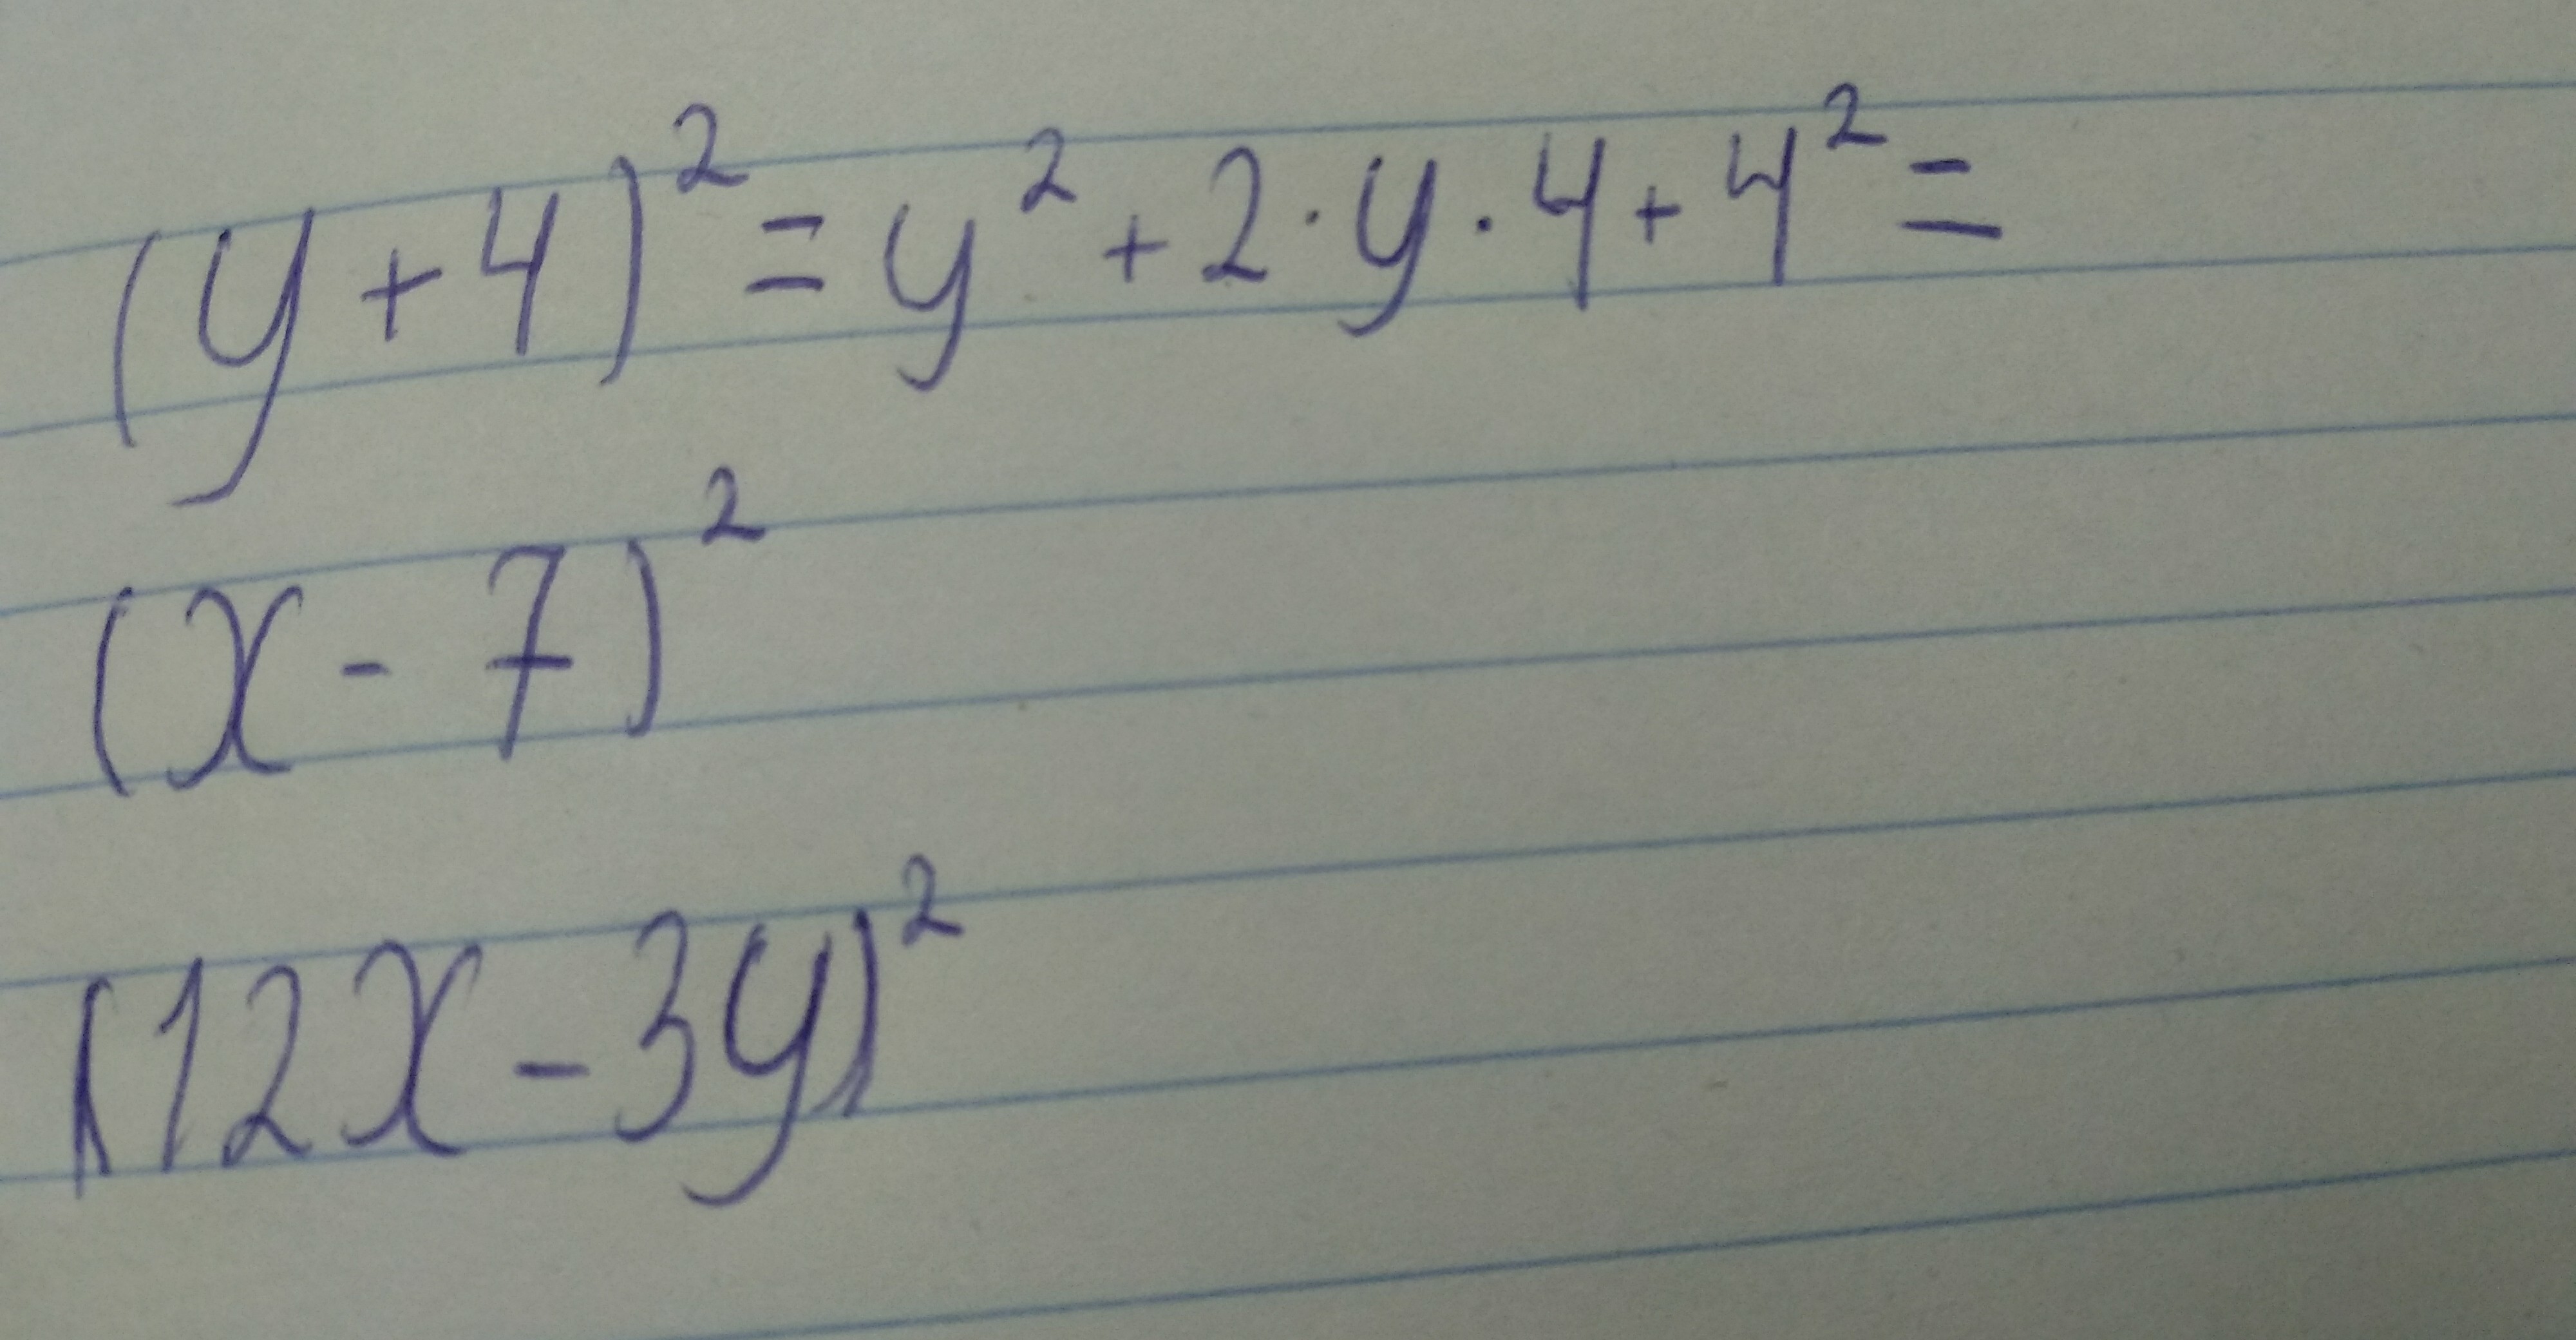 (y+4)² = y² + 2·y·4 + 4² =
(x - 7)²
(12x - 3y)²